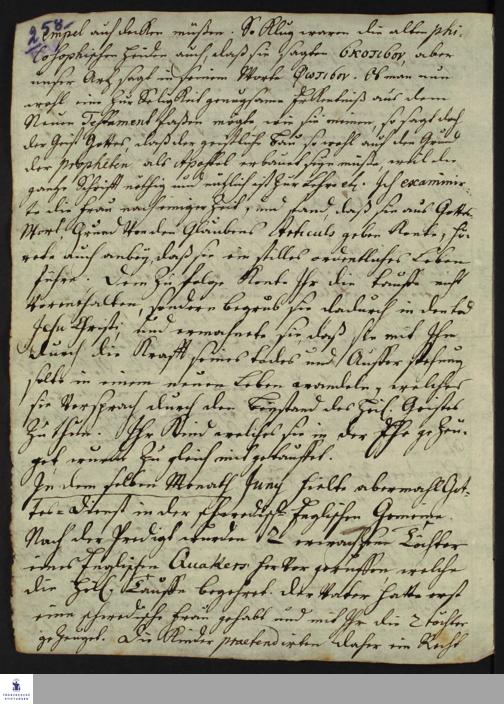 258.
Tempel auch decken müßen. So klug waren die alten phi-
losophischen Heiden auch daß sie sagten aber
unser Artz sagt in seinem Worte Ob man nun
wohl eine zur Seligkeit genugsame Erkentniß aus dem
Neuen Testament faßen mögte wie sie meinen, so sagt doch
der Geist Gottes, daß der geistliche Bau so wohl auf den Grund
der Propheten als Apostel erbauet seyn müße, weil die
gantze Schrift nöthig und nützlich ist zur Lehre etc. Ich examinir-
te die Frau nach einiger Zeit, und fand, daß sie aus Gottes
Wort Grund von den Glaubens Articuls geben konte, hö-
rete auch anbey, daß sie ein stilles ordentliches Leben
führe. Dem zu folge konte Ihr die Tauffe nicht
vorenthalten, sondern begrub sie dadurch in den Tod
Jesu Christi und ermahnete sie, daß sie mit Ihm
durch die Krafft seines Todes und Aufferstehung
solte in einem neuen Leben wandeln, welches
sie versprach durch den Beystand des Heil. Geistes
zu thun. Ihr Kind welches sie in der Ehe gezeu-
get wurde zu gleich mit getauffet.
In dem selben Monath Juny hielte abermahl Got-
tes-Dienst in der Schwedisch-Englischen Gemeine.
Nach der Predigt wurden 2 erwachsene Töchter
eines Englischen Quakers hervor geruffen, welche
die Heil. Tauffe begehret. der Vater hatte erst
eine schwedische Frau gehabt und mit Ihr die 2 Töchter
gezeuget. Die Kinder praetendirten daher ein Recht
FRANCKESCHE
STIFTUNGEN